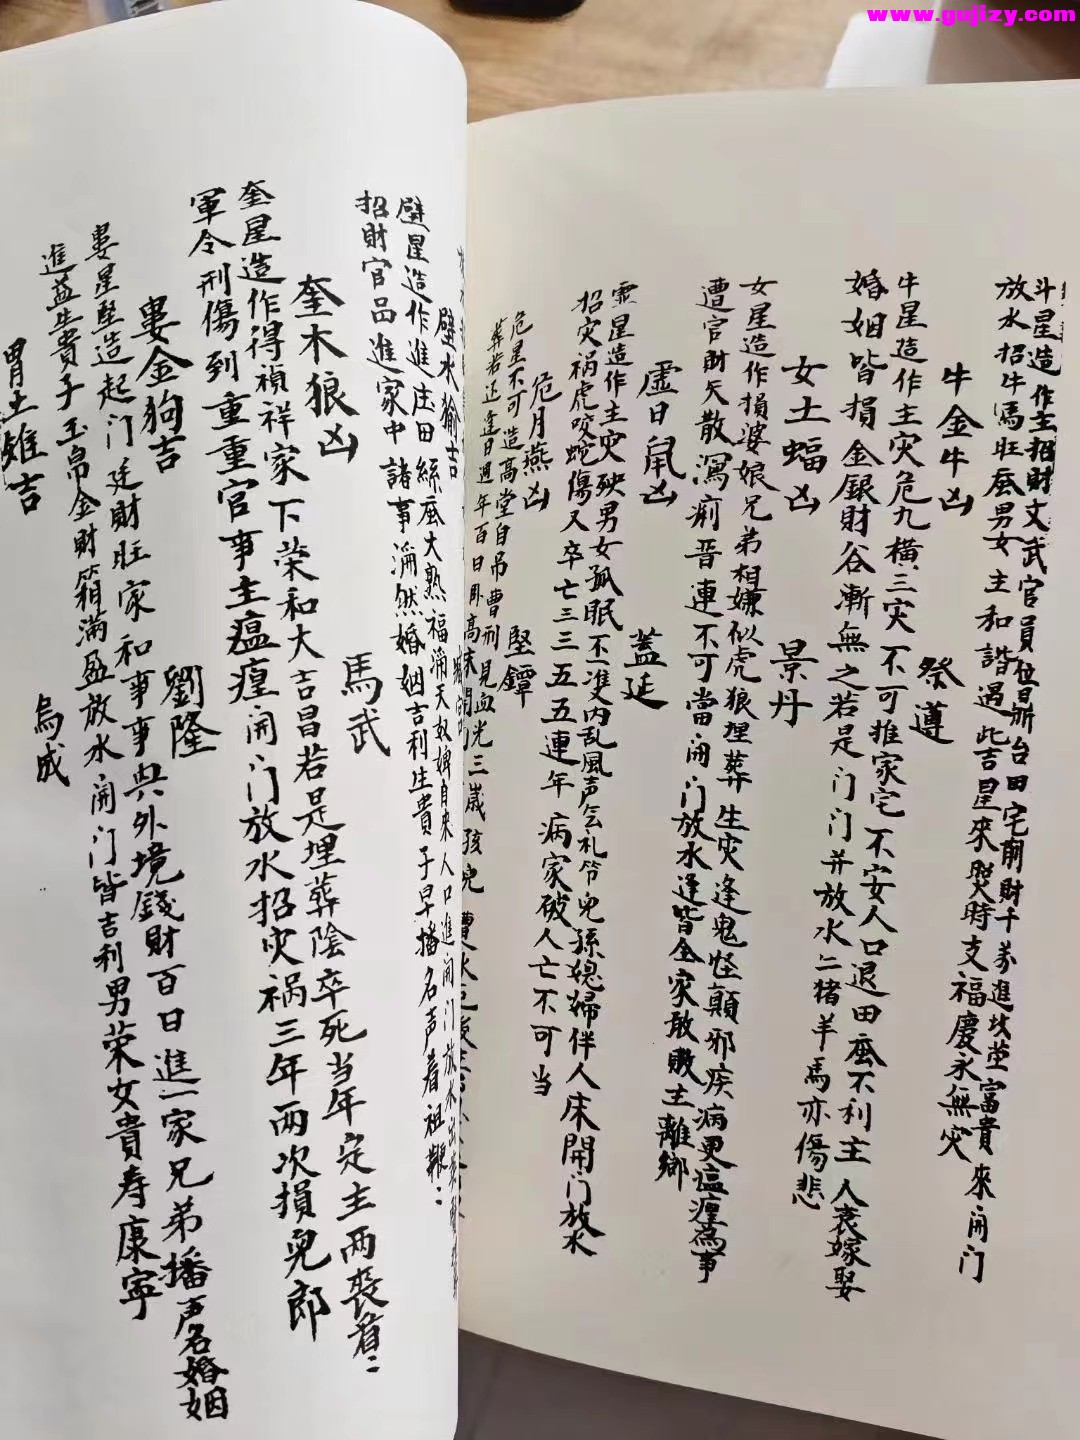 www.gujizy.com
斗星造作主招財文武官員位
田宅
財千
進
富貴來開门
放水招牛馬旺蚕男女主和諧遇此吉星來照時支福慶永無灾
牛金牛凶 祭遵
牛星造作主灾危九橫三灾不可推家宅不安人口退田蚕不利主人衰嫁娶
婚姻皆損金銀財谷漸無之若是门门并放水二猪羊馬亦傷悲
女土蝠凶 景丹
女星造作損婆娘兄弟相嫌似虎狼埋葬生灾逢鬼怪顛邪疾病更瘟瘟為事
遭官財矢散瀉痢晋連不可當開门放水逢皆全家散敗主離鄉
虛日鼠凶 蓋延
虛星造作主灾殃男女孤眠不一双内乱風声無礼节兒孫媳婦伴人床開门放水
招灾祸虎咬蛇傷又卒亡三三五五連年病家破人亡不可当
危月燕凶 堅鐔
危星不可造高堂自吊曹刑見血光三歲孩兒曹水
葬若还逢日週年百日卧高床開门
壁水貐吉
壁星造作進庄田絲蚕大熟福滿天奴婢自來人口進開门放水出
招財官品進家中諸事滿然婚姻吉利生貴子早播名声着祖鞭：
奎木狼凶 馬武
奎星造作得禎祥家下荣和大吉昌若是埋葬陰卒死当年定主两喪着：
軍令刑傷列重重官事主瘟瘟開门放水招灾祸三年两次損兒郎
婁金狗吉 劉隆
婁星堅造起门廷財旺家和事事興外境錢財百日進一家兄弟播声名婚姻
進益生貴子玉帛金財箱滿盈放水開门皆吉利男荣女貴寿康寧
胃土雉吉 烏成